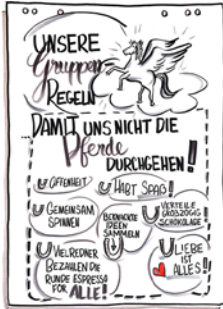 UNSERE
Gruppen
REGELN
DAMIT UNS NICHT DIE
Pferde
DURCHGEHEN!
OFFENHEIT
HABT SPAß!
GEMEINSAM
SPINNEN
BEKNACKTE
IDEEN
SAMMELN
VERTEILE
GROßZÜGIG
SCHOKOLADE
VIELREDNER
BEZAHLEN DIE
RUNDE ESPRESSO
FÜR ALLE!
LIEBE
IST
ALLES!!